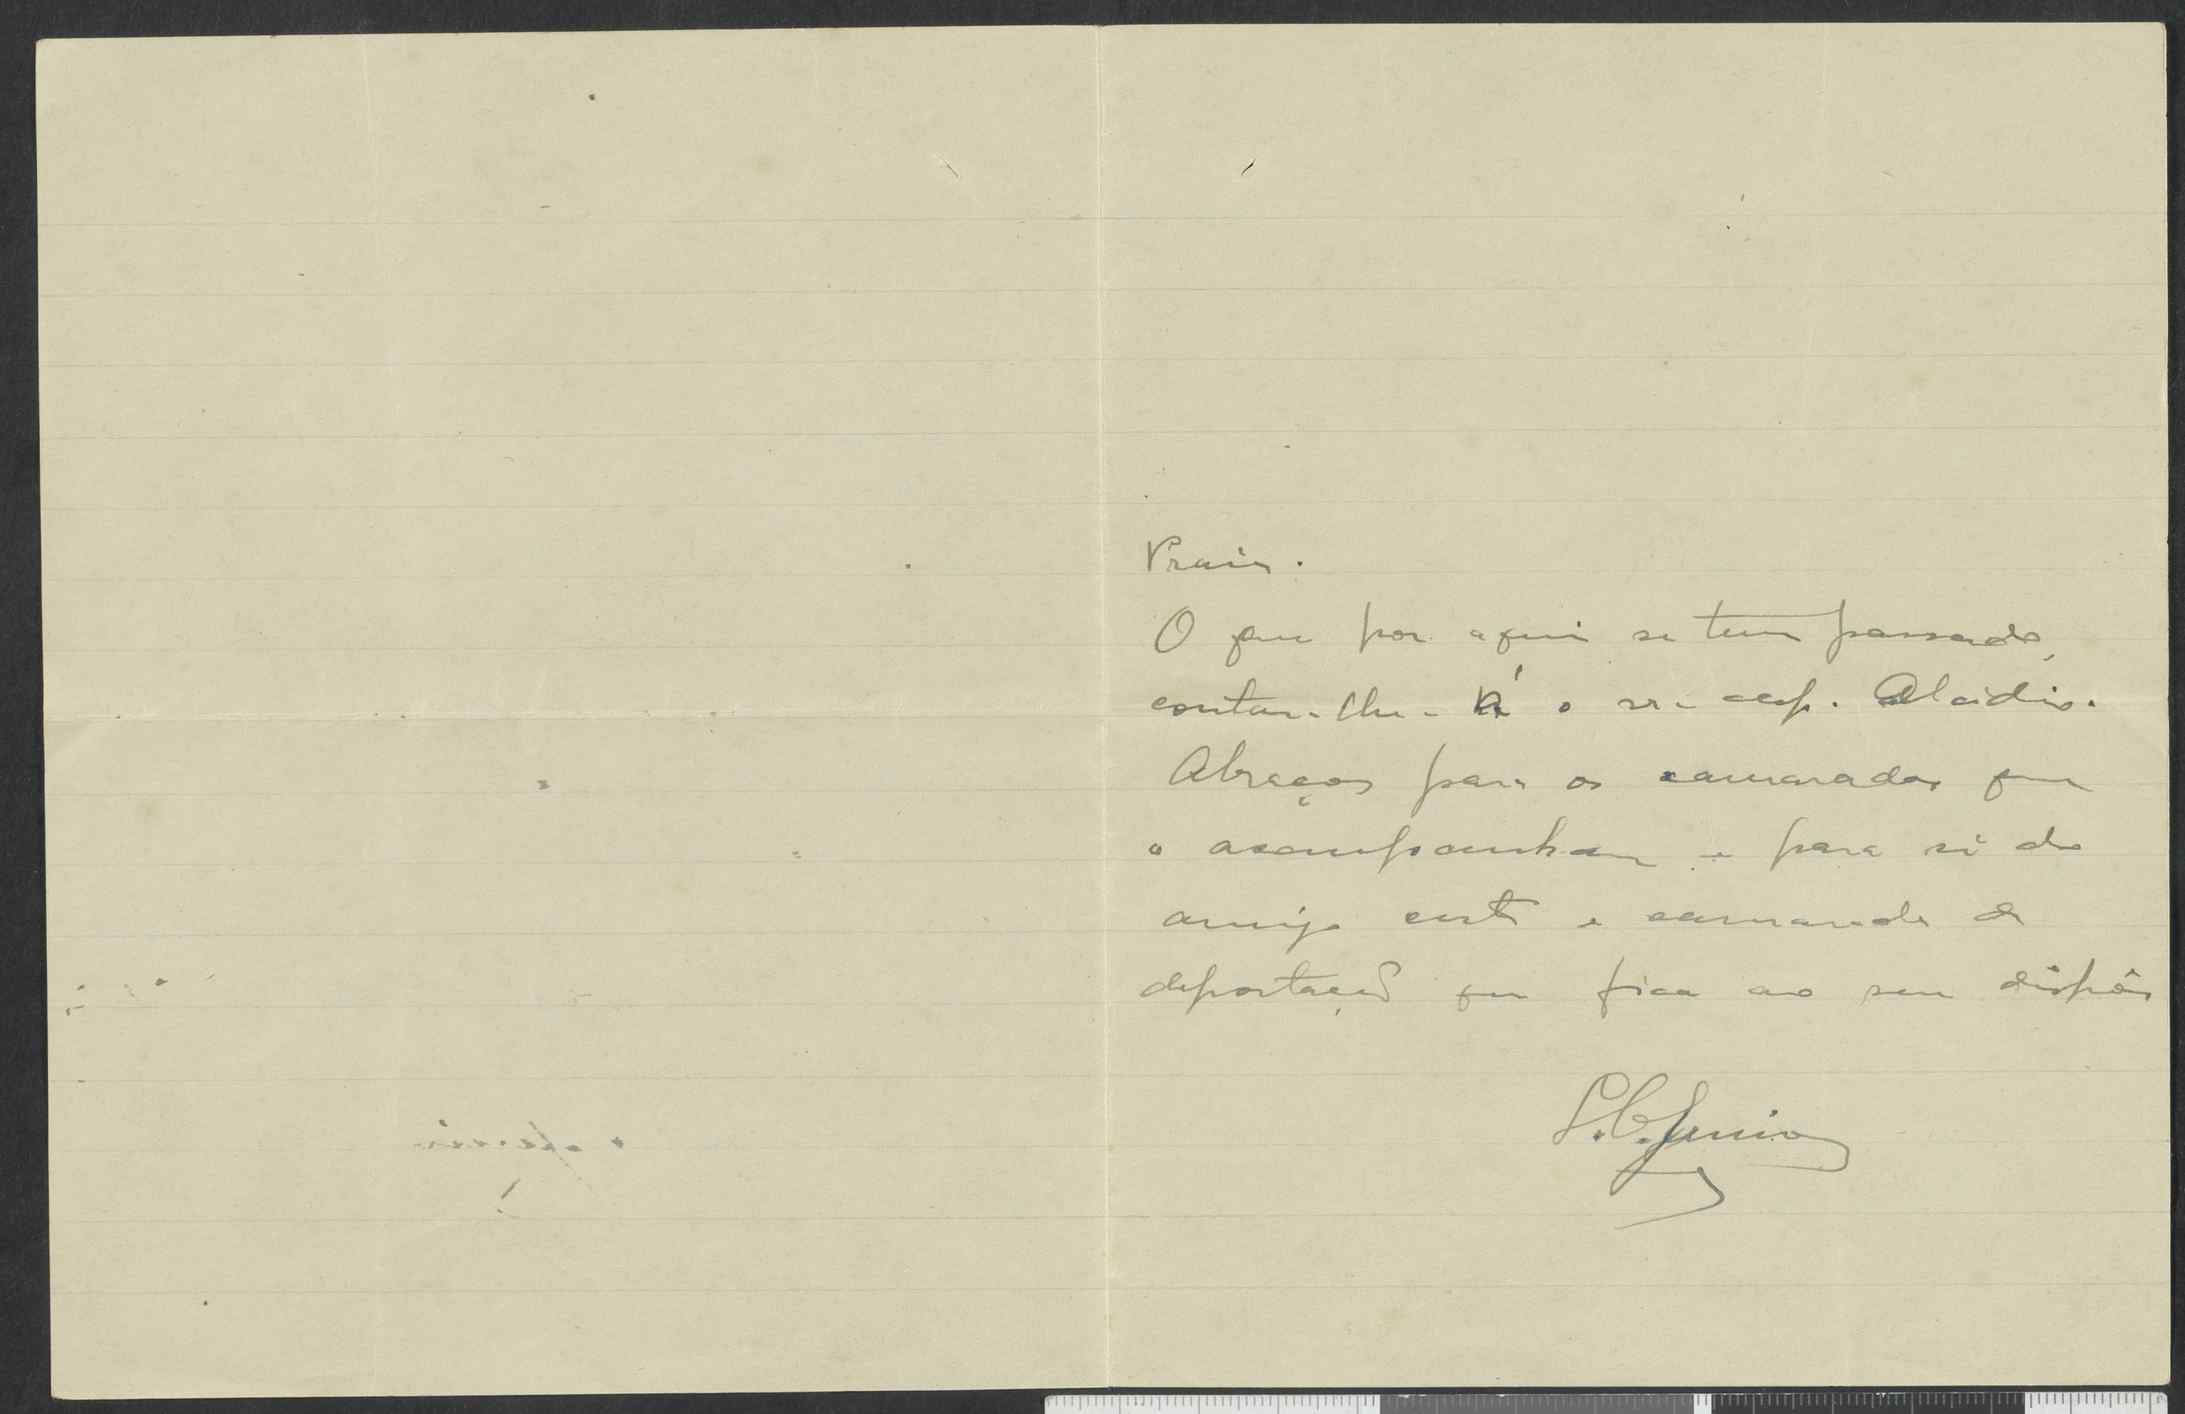 Praia.
O que por aqui se tem passado,
contar-lhe-á o sr. cap. Alcidio.
Abraços para os camaradas que
o acompanham e para si do
amigo certo e camarada de
deportação que fica ao seu dispôr
S.C. Junior